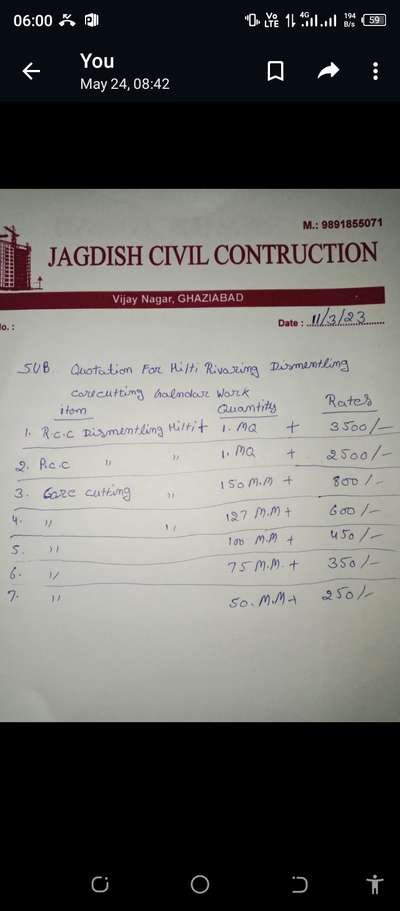 06:00 Vo LTE 4G 194 B/s 59
You
May 24, 08:42
M.: 9891855071
JAGDISH CIVIL CONTRUCTION
Vijay Nagar, GHAZIABAD
No. : Date : 11/3/23
SUB. Quotation For Hilti Rivaring Dismentling
corecutting Galndar Work
item Quantity Rates
1. R.c.c Dismentling Hilti+ 1. MQ + 3500/-
2. P.c.c " " 1. MQ + 2500/-
3. Core cutting " 150 M.M + 800/-
4. " " 127 M.M + 600/-
5. " 100 M.M + 450/-
6. " 75 M.M. + 350/-
7. " 50. M.M + 250/-